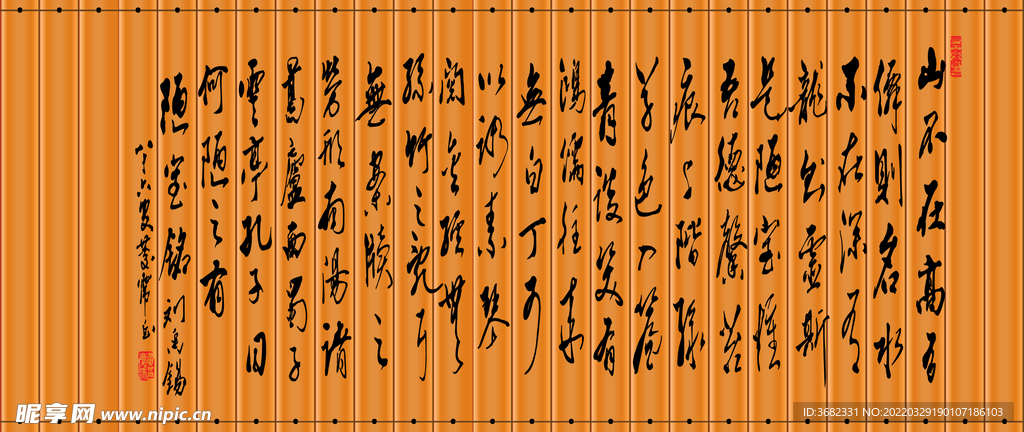 山不在高有
僊則名水
不在深有
龍則靈斯
是陋室惟
吾德馨苔
痕上階綠
草色入簾
青談笑有
鴻儒往來
無白丁可
以調素琴
閱金經無
絲竹之亂耳
無案牘之
勞形南陽諸
葛廬西蜀子
雲亭孔子曰
何陋之有
陋室銘刘禹錫
八十六叟
昵享网 www.nipic.cn
ID:3682331 NO:20220329190107186103